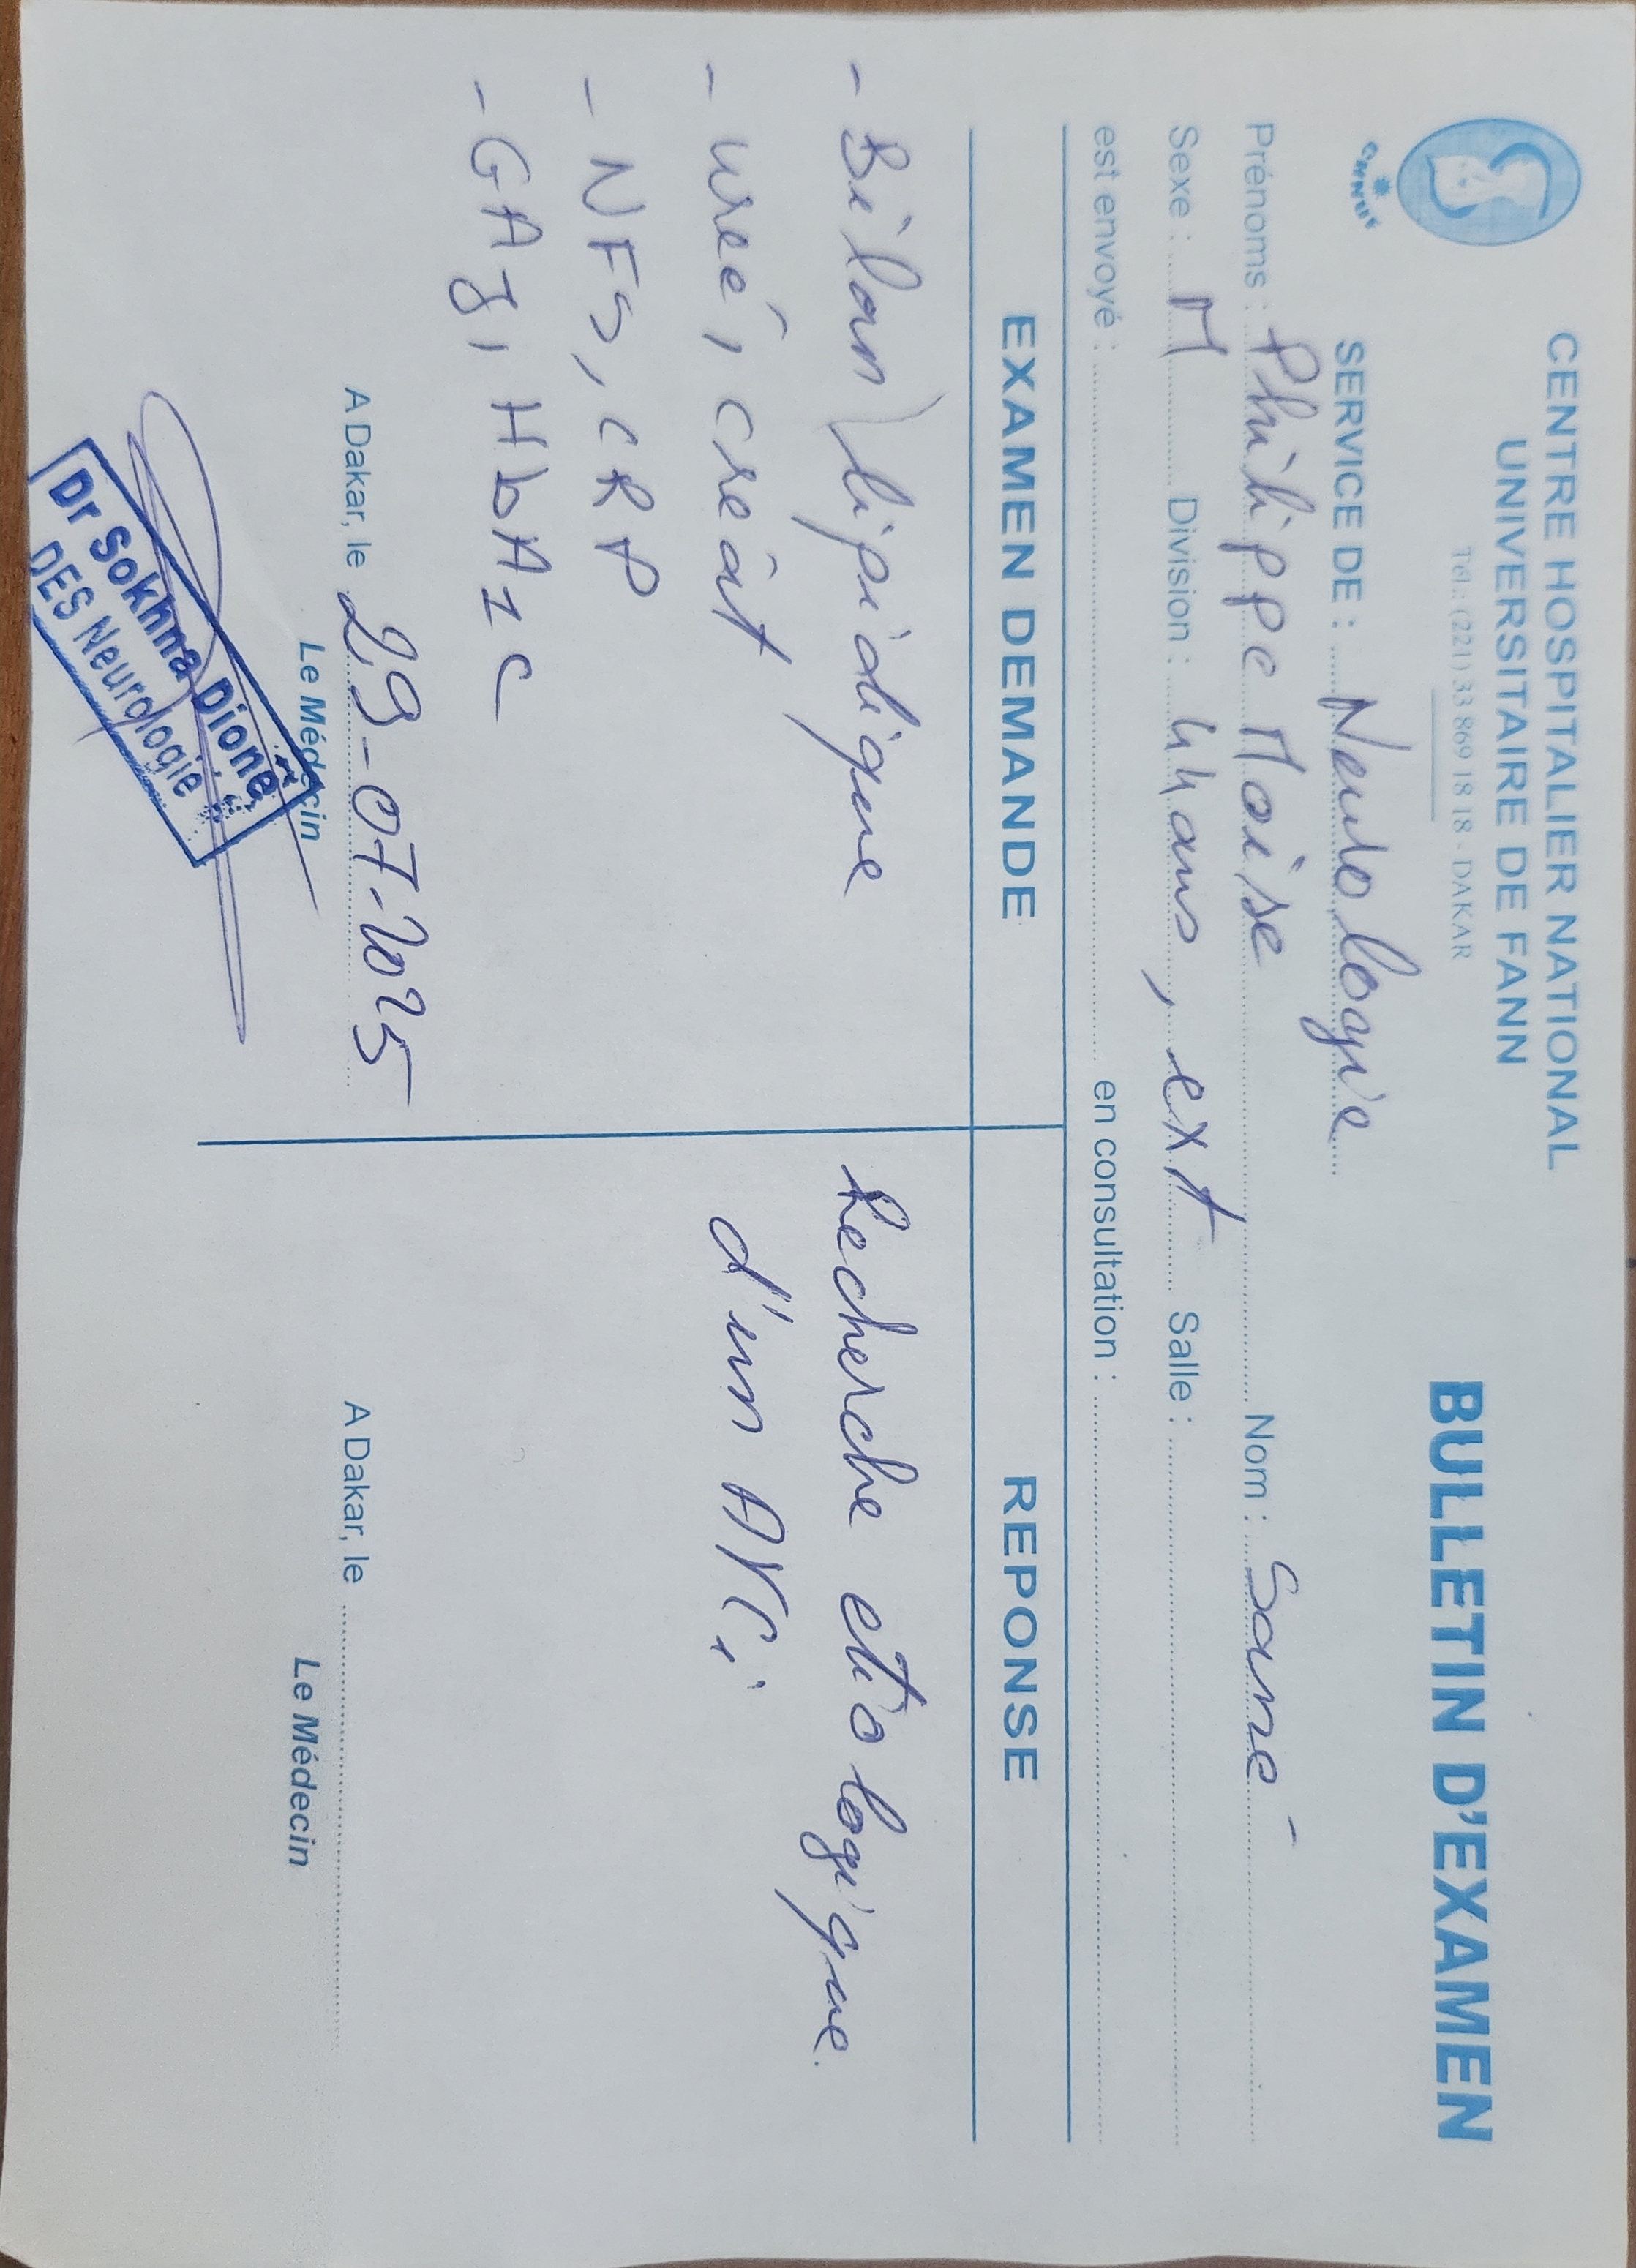 CENTRE HOSPITALIER NATIONAL
UNIVERSITAIRE DE FANN
Tél.: (221) 33 869 18 18 - DAKAR
CHNUF
BULLETIN D'EXAMEN
SERVICE DE : Neurologie
Prénoms : Philippe Moise Nom : Sané
Sexe : M Division : 44ans, ext Salle :
est envoyé : en consultation :
EXAMEN DEMANDE
- Bilan lipidique
- urée, créat
- NFS, CRP
- GAJ, HbA1c
A Dakar, le 29-07-2025
Le Médecin
Dr Sokhna Dione
DES Neurologie
REPONSE
Recherche etiologique
d'un AVCi
A Dakar, le
Le Médecin